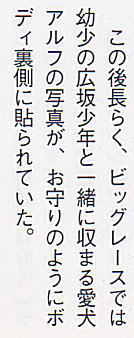 この後長らく、ビッグレースでは
幼少の広坂少年と一緒に収まる愛犬
アルフの写真が、お守りのようにボ
ディ裏側に貼られていた。